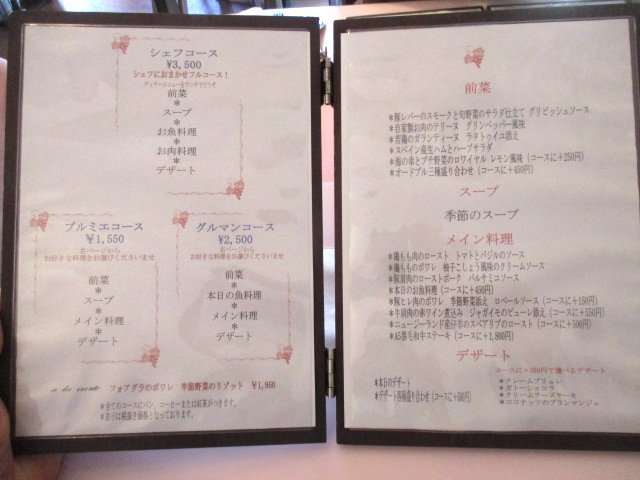 シェフコース
¥3,500
シェフにおまかせフルコース!
ディナーメニューをランチでどうぞ
前菜
*
スープ
*
お魚料理
*
お肉料理
*
デザート
プルミエコース
¥1,550
右ページから
お好きな料理をお選びくださいませ
前菜
*
スープ
*
メイン料理
*
デザート
グルマンコース
¥2,500
右ページから
お好きな料理をお選びくださいませ
前菜
*
本日の魚料理
*
メイン料理
*
デザート
a la carte フォアグラのポワレ 季節野菜のリゾット ¥1,950
*全てのコースにパン、コーヒーまたは紅茶がつきます。
*表示は税抜き価格となっております。
前菜
*豚レバーのスモークと旬野菜のサラダ仕立て グリビッシュソース
*自家製お肉のテリーヌ グリンペッパー風味
*若鶏のガランティーヌ ラタトゥイユ添え
*スペイン産生ハムとハーブサラダ
*海の幸とプチ野菜のロワイヤル レモン風味 (コースに+250円)
*オードブル三種盛り合わせ (コースに+450円)
スープ
季節のスープ
メイン料理
*鶏もも肉のロースト トマトとバジルのソース
*鶏もものポワレ 柚子こしょう風味のクリームソース
*豚肩肉のローストポーク バルサミコソース
*本日のお魚料理 (コースに+450円)
*豚ヒレ肉のポワレ 季節野菜添え ロベールソース (コースに+150円)
*牛肩肉の赤ワイン煮込み ジャガイモのピューレ添え (コースに+350円)
*ニュージーランド産仔羊のスペアリブのロースト (コースに+500円)
*A5黒毛和牛ステーキ (コースに+1,800円)
デザート
コースに+350円で選べるデザート
*本日のデザート
*デザート四種盛り合わせ (コースに+500円)
*クレームブリュレ
*ガトーショコラ
*クリームチーズケーキ
*ココナッツのブランマンジェ